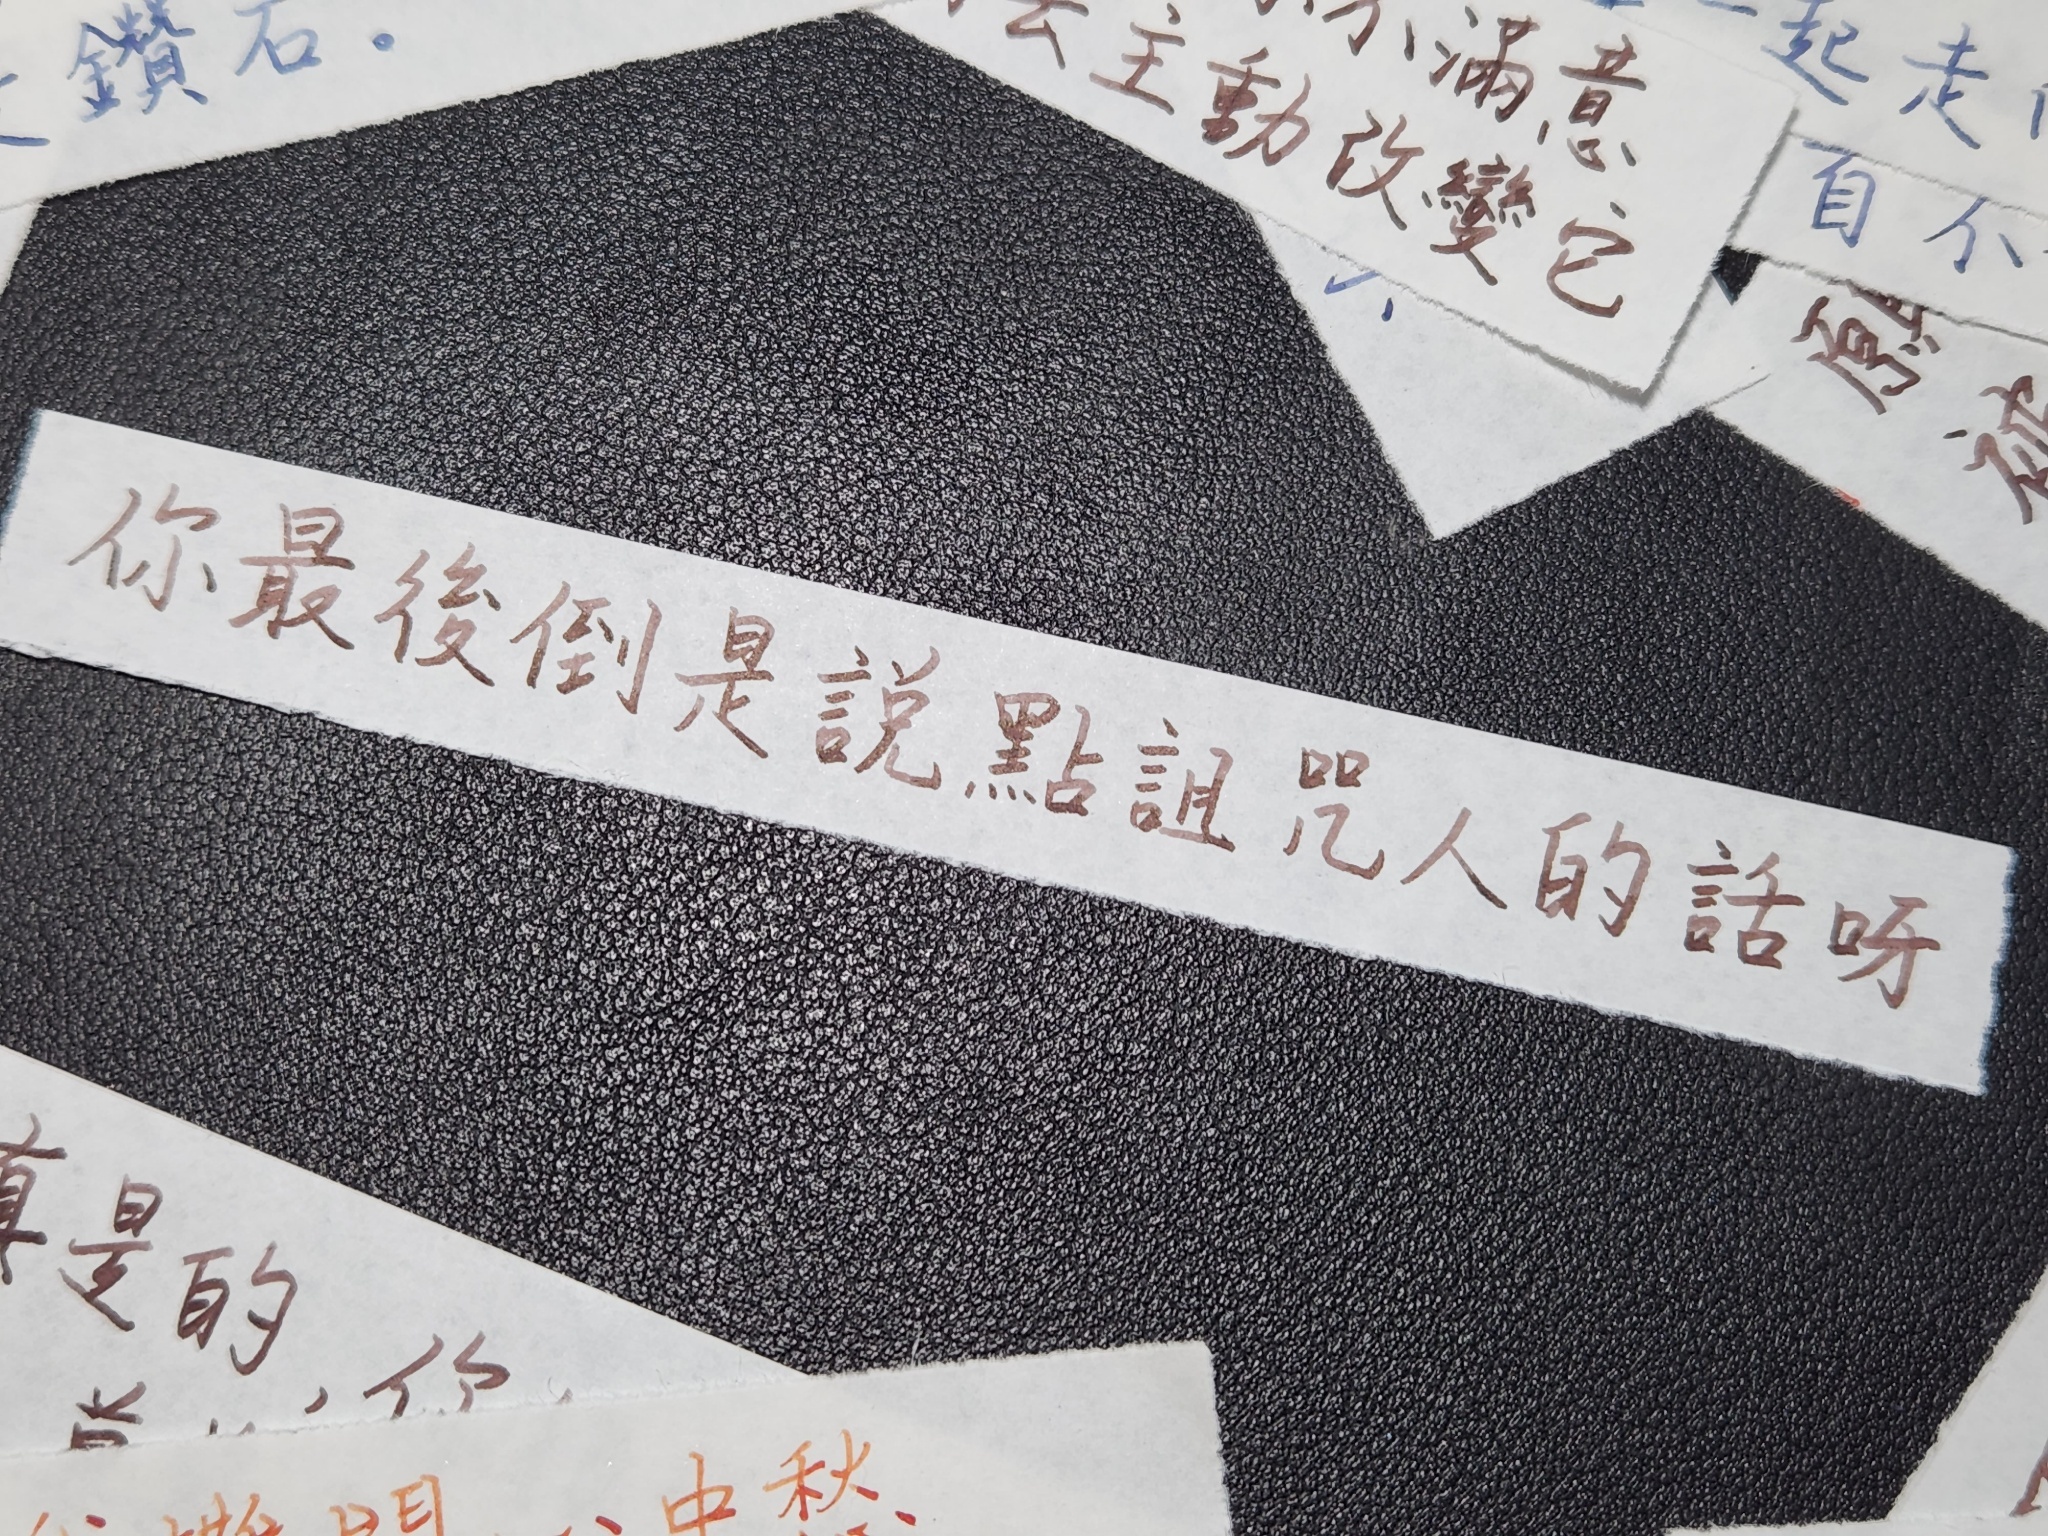 鑽石。
不滿意
主動改變它
起走
百不
你最後倒是説點詛咒人的話呀
真是的
你
中秋